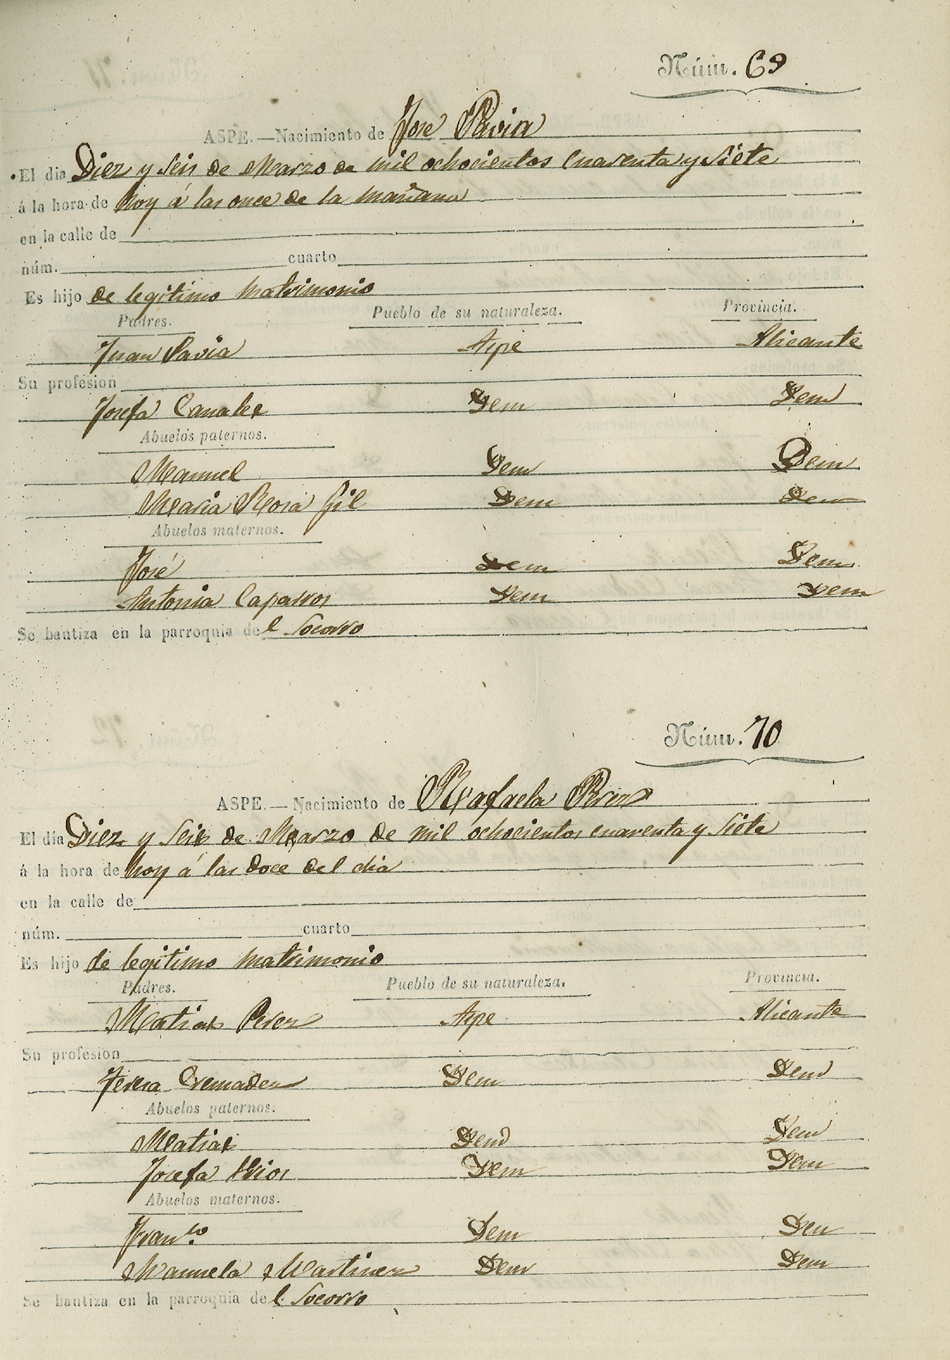 Núm. 69
ASPE.—Nacimiento de José Pavia
El dia Diez y Seis de Marzo de mil ochocientos cuarenta y Siete
á la hora de hoy á las once de la mañana
en la calle de
núm. cuarto
Es hijo de legitimo matrimonio
Padres. Pueblo de su naturaleza. Provincia.
Juan Pavia Aspe Alicante
Su profesion
Josefa Canales Ydem Ydem
Abuelos paternos.
Manuel Ydem Ydem
Maria Rosa Gil Ydem Ydem
Abuelos maternos.
José Ydem Ydem
Antonia Caparros Ydem Ydem
Se bautiza en la parroquia del Socorro
Núm. 70
ASPE.—Nacimiento de Rafaela Perez
El dia Diez y Seis de Marzo de mil ochocientos cuarenta y Siete
á la hora de hoy á las doce del dia
en la calle de
núm. cuarto
Es hijo de legitimo matrimonio
Padres. Pueblo de su naturaleza. Provincia.
Matias Perez Aspe Alicante
Su profesion
Teresa Cremades Ydem Ydem
Abuelos paternos.
Matias Ydem Ydem
Josefa Ydem Ydem
Abuelos maternos.
Franco. Ydem Ydem
Manuela Martinez Ydem Ydem
Se bautiza en la parroquia del Socorro